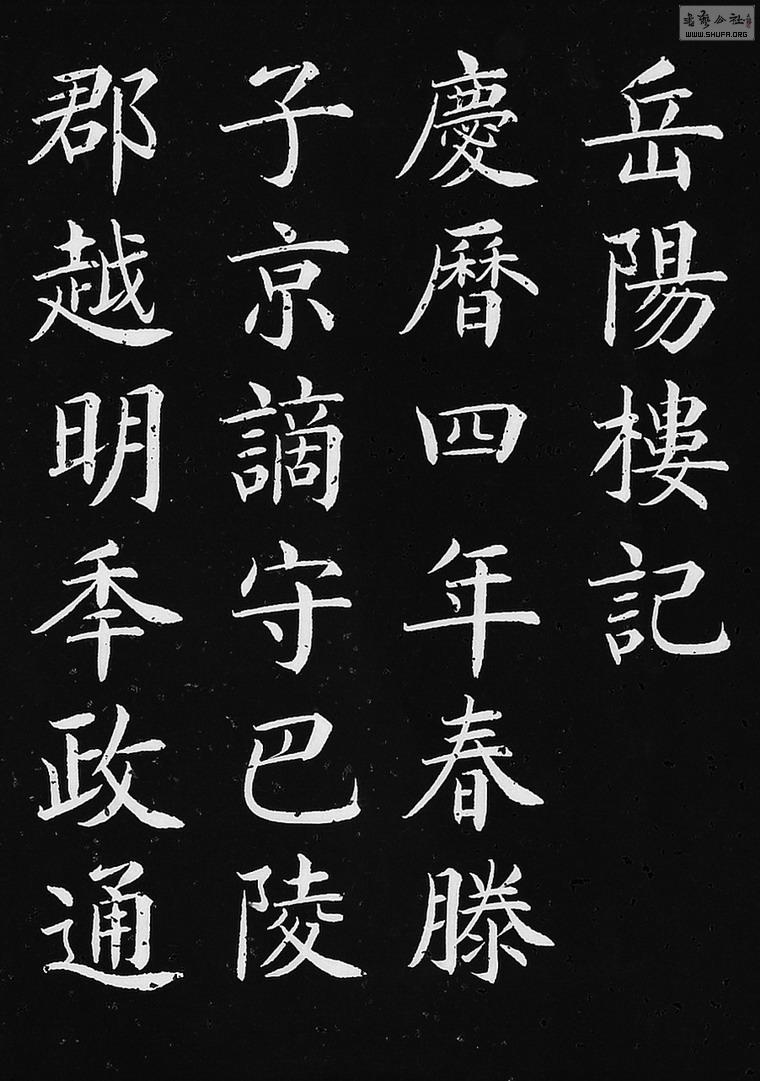 岳陽樓記
慶曆四年春滕
子京謫守巴陵
郡越明秊政通
WWW.SHUFA.ORG